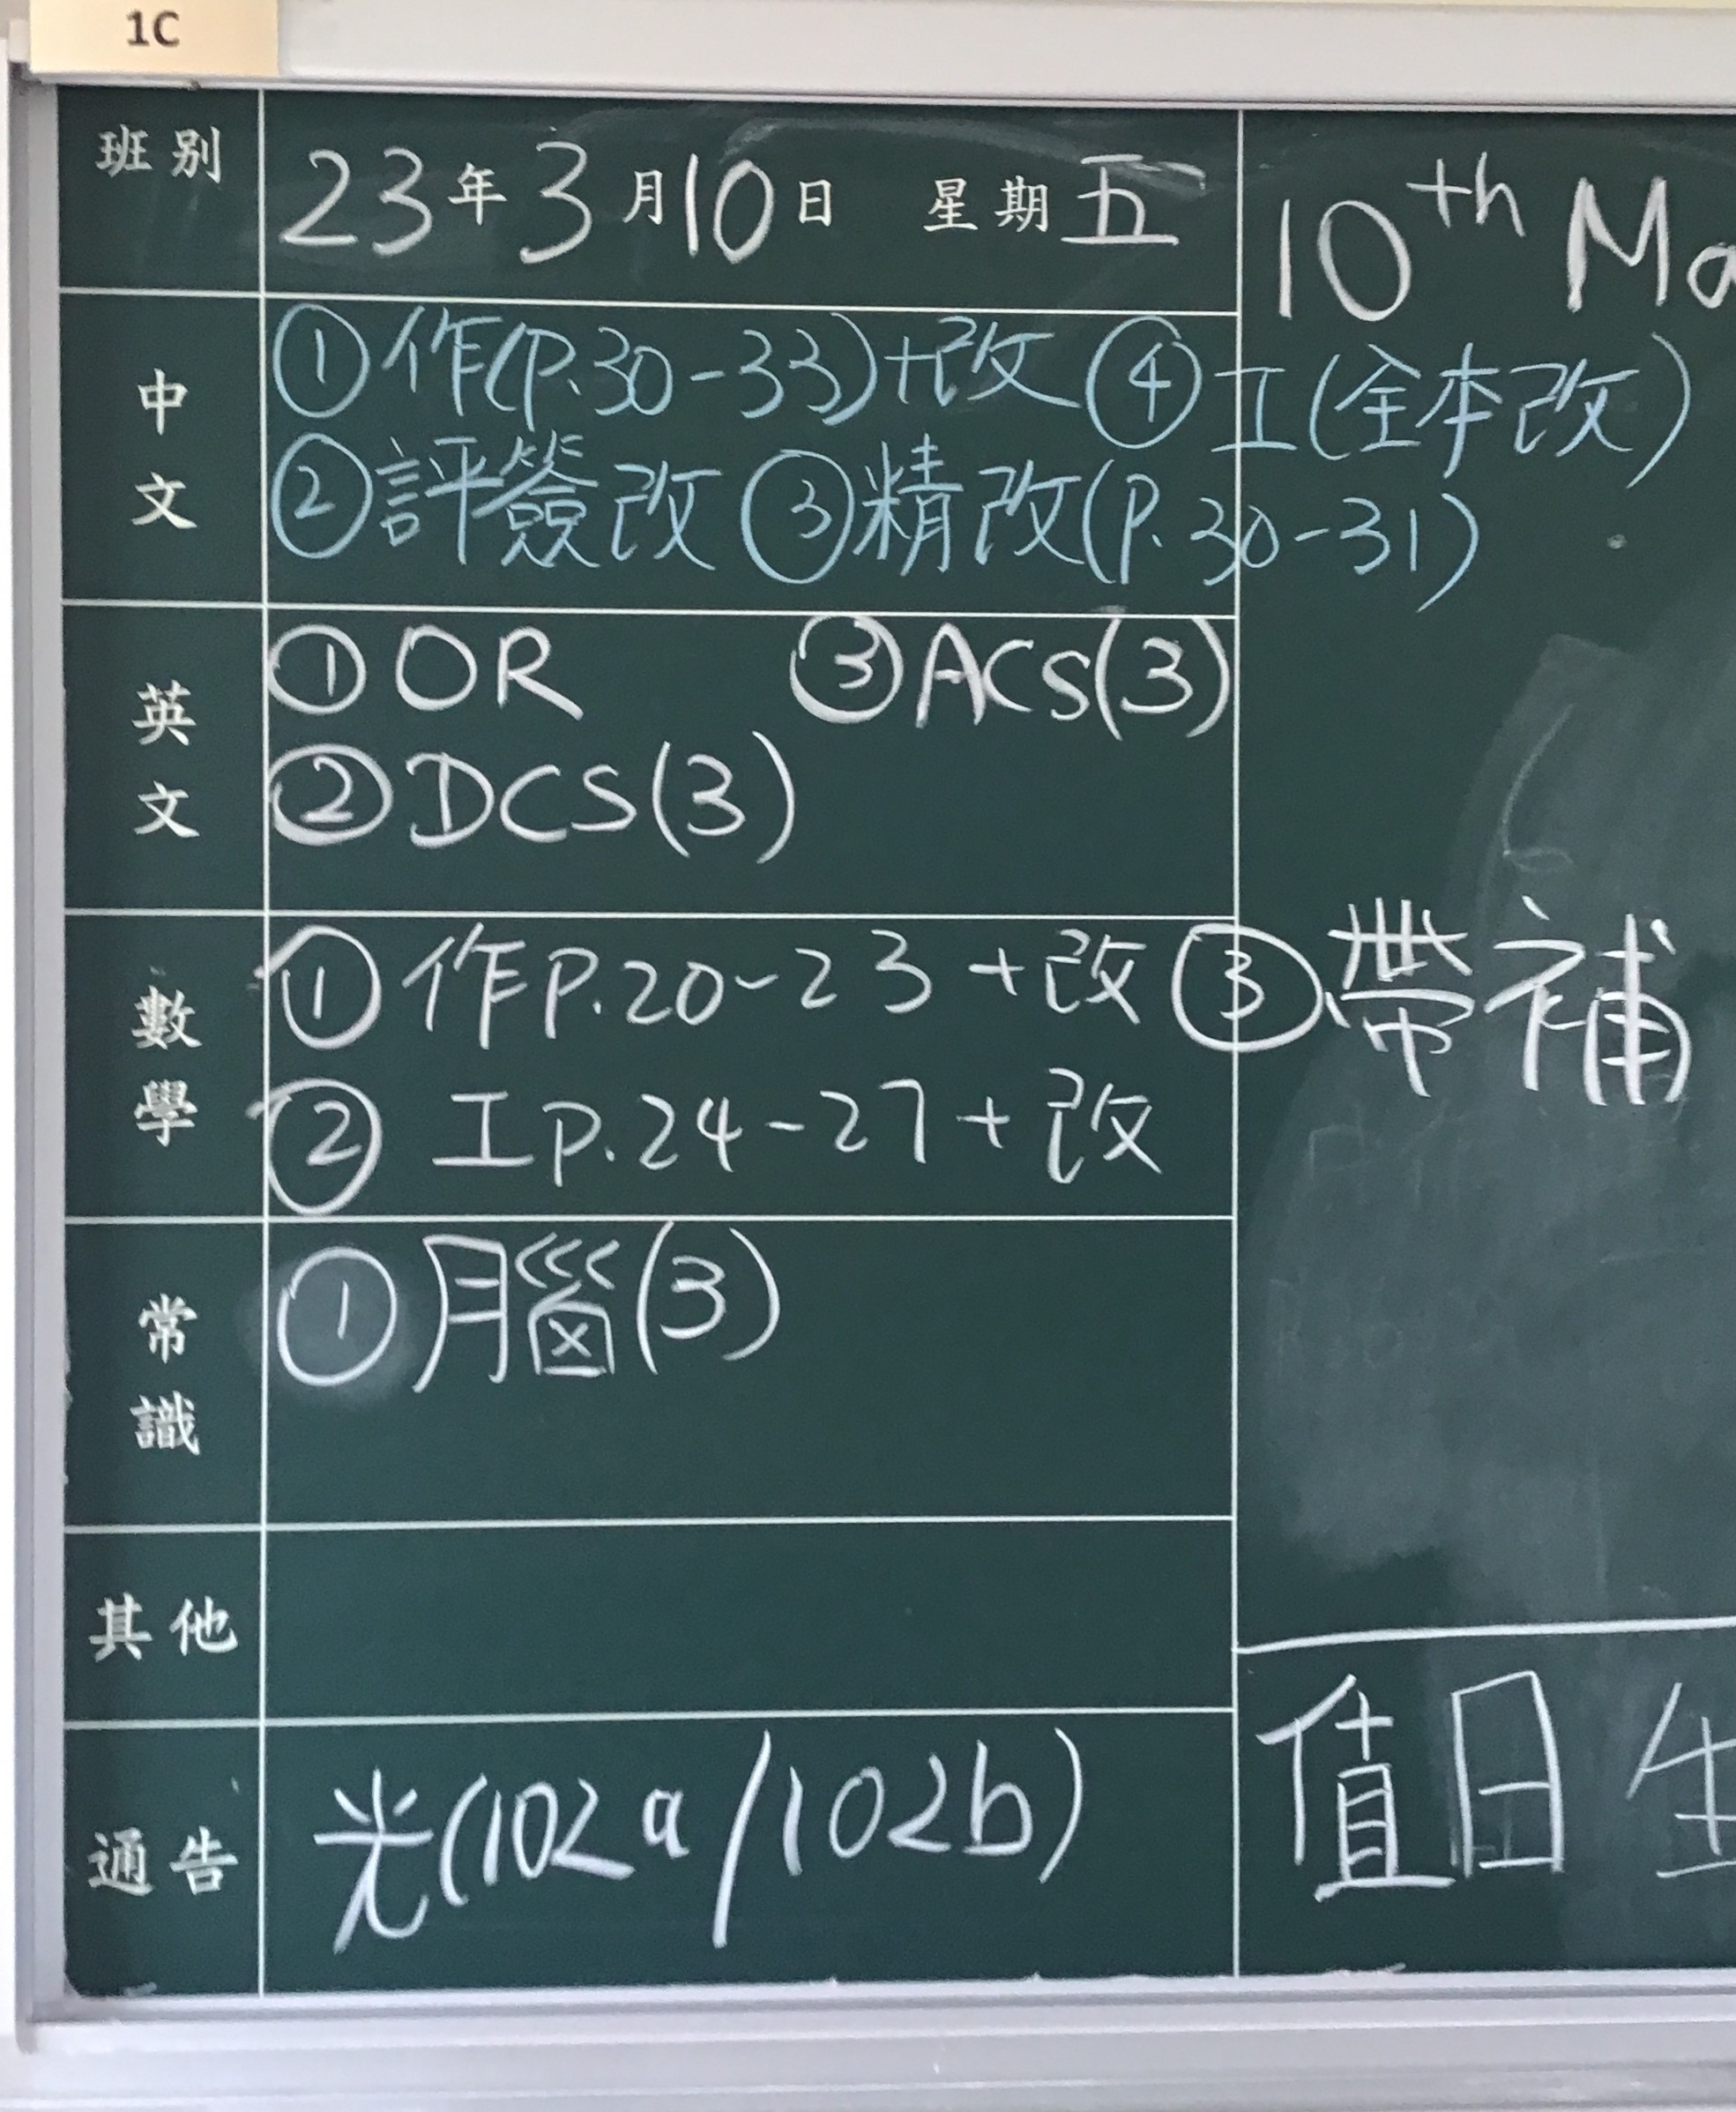 1C
班別 23年3月10日 星期五 10th Ma
中文
①作(P.30-33)+改 ④工(全本改)
②評簽改 ③精改(P.30-31)
英文
①OR ③ACS(3)
②DCS(3)
數學
①作P.20-23+改 ③帶補
②工P.24-27+改
常識
①腦(3)
其他
通告 光(102a/102b)
值日生